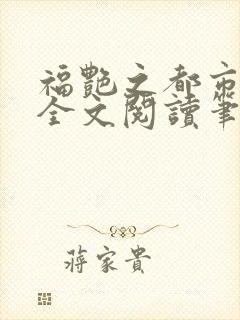 福艷之都市
全文閱讀筆
蔣家貴